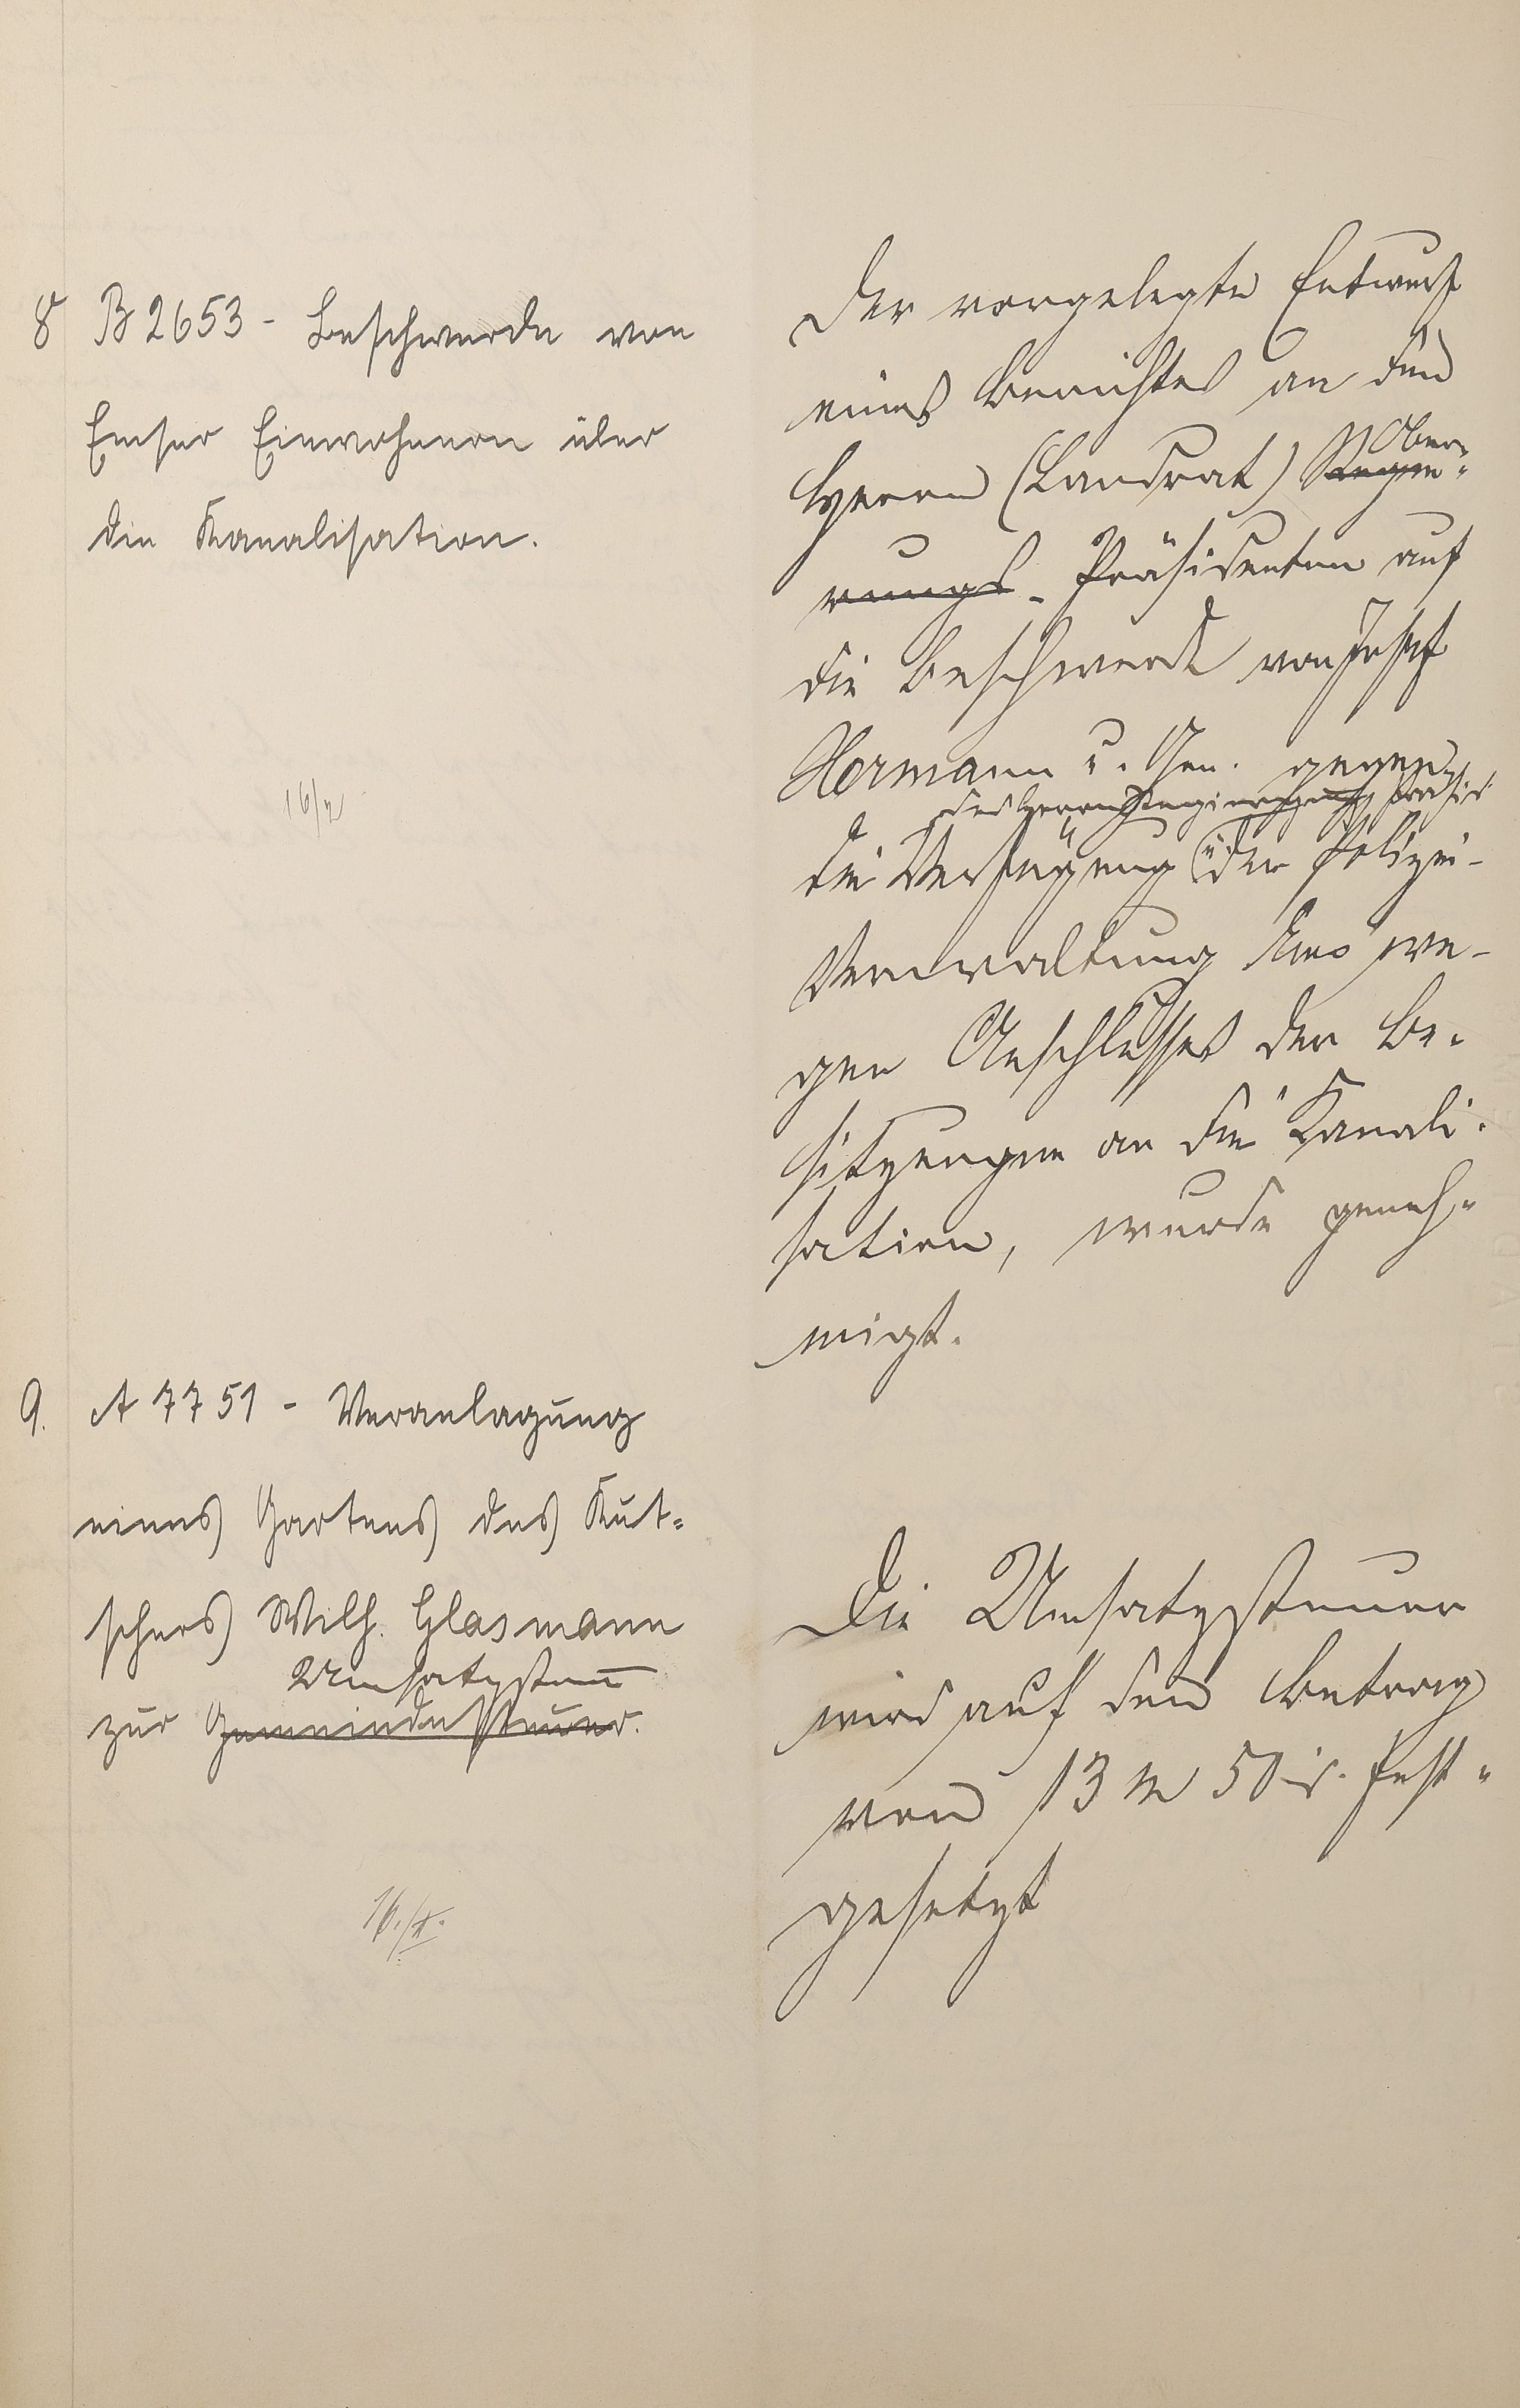 8 B 2653 - Beschwerde von
Emser Einwohnern über
die Kanalisation.
Der vorgelegte Entwurf
eines Berichtes an den
Ober-
Herrn (Landrat) Regie-
rungs- Präsidenten auf
die Beschwerde von Josef
Hermann u. Gen. gegen
des Herrn Regierungs Präsid
die Verfügung der Polizei-
Verwaltung Ems we-
gen Anschlusses der Be-
sitzungen an die Kanali-
sation, wurde geneh-
migt.
9. A 7751 - Veranlagung
eines Gartens des Kut-
schers Wilh. Glasmann
Umsatzsteuer
zur Gemeindesteuer.
16./X.
Die Umsatzsteuer
wird auf den Betrag
von 13 M 50 fest-
gesetzt